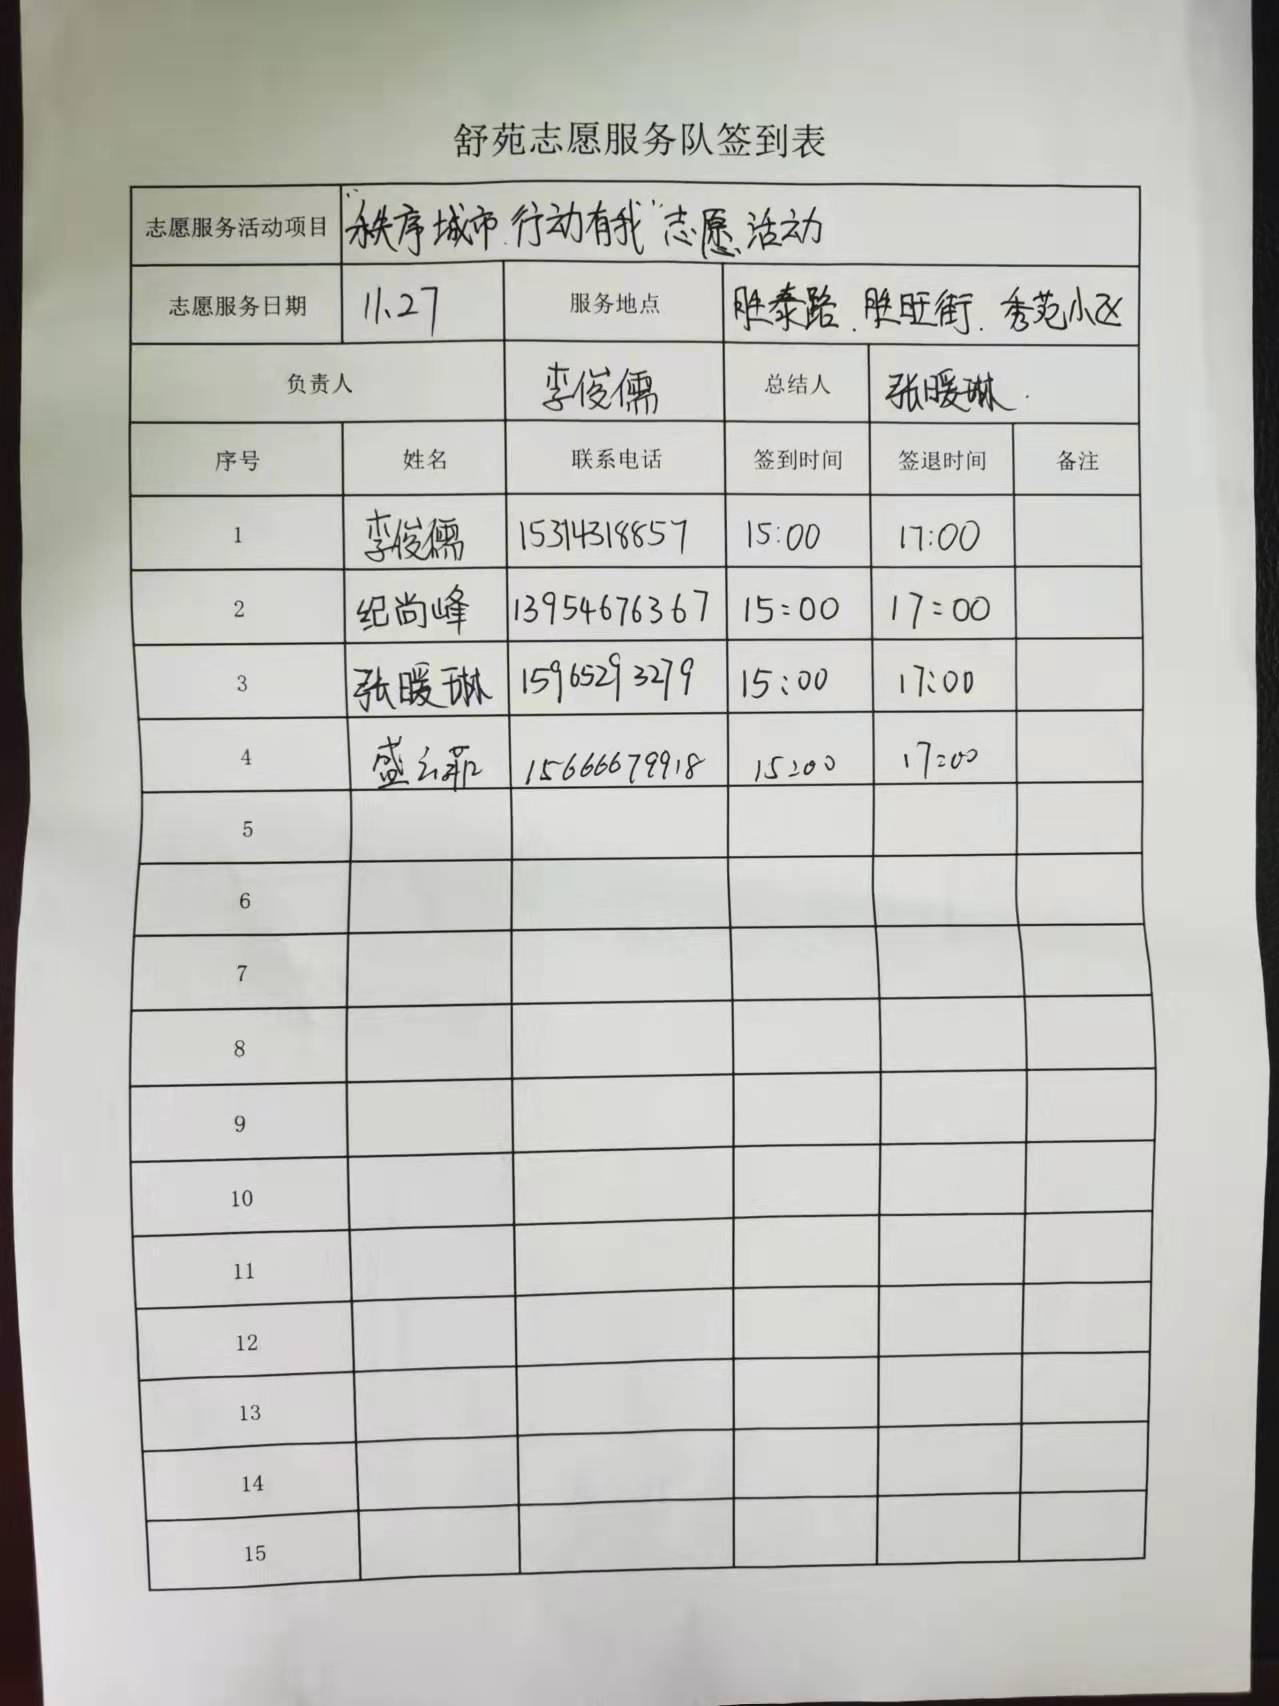 舒苑志愿服务队签到表
志愿服务活动项目 “秩序城市.行动有我”志愿活动
志愿服务日期 11.27 服务地点 胜泰路、胜旺街、秀苑小区
负责人 李俊儒 总结人 张暖琳
序号 姓名 联系电话 签到时间 签退时间 备注
1 李俊儒 15314318857 15:00 17:00
2 纪尚峰 13954676367 15:00 17:00
3 张暖琳 15965293279 15:00 17:00
4 盛云菲 15666679918 15:00 17:00
5
6
7
8
9
10
11
12
13
14
15